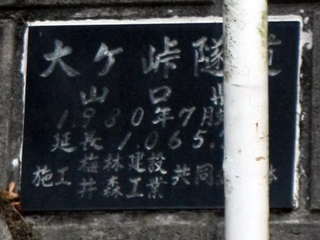 大ケ峠隧道
山口県
1.980年7月
延長1.065.
施工 林建設 共同
井森工業